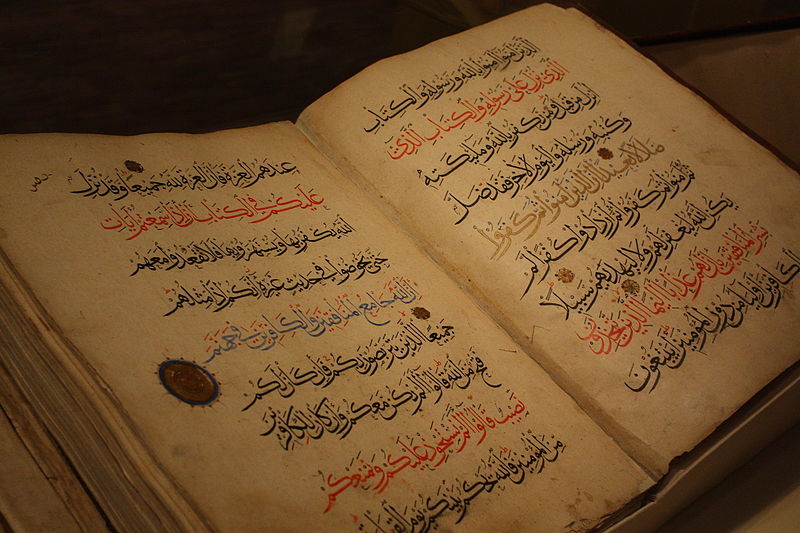 الذين امنوا امنوا بالله ورسوله والكتاب
الذي نزل على رسوله والكتاب الذي
انزل من قبل ومن يكفر بالله وملئكته
وكتبه ورسله واليوم الاخر فقد ضل
ضلالا بعيدا ان الذين امنوا ثم كفروا
ثم امنوا ثم كفروا ثم ازدادوا كفرا لم
يكن الله ليغفر لهم ولا ليهديهم سبيلا
بشر المنافقين بان لهم عذابا اليما الذين يتخذون
الكافرين اولياء من دون المؤمنين ايبتغون
عندهم العزة فان العزة لله جميعا وقد نزل
عليكم في الكتاب ان اذا سمعتم ايات
الله يكفر بها ويستهزء بها فلا تقعدوا معهم
حتى يخوضوا في حديث غيره انكم اذا مثلهم
ان الله جامع المنافقين والكافرين في جهنم
جميعا الذين يتربصون بكم فان كان لكم
فتح من الله قالوا الم نكن معكم وان كان للكافرين
نصيب قالوا الم نستحوذ عليكم ونمنعكم
من المؤمنين فالله يحكم بينكم يوم القيامة